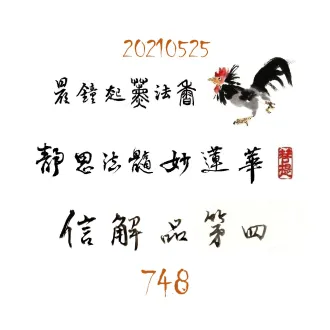 20210525
晨鐘起薰法香
靜思法髓妙蓮華
信解品第四
748